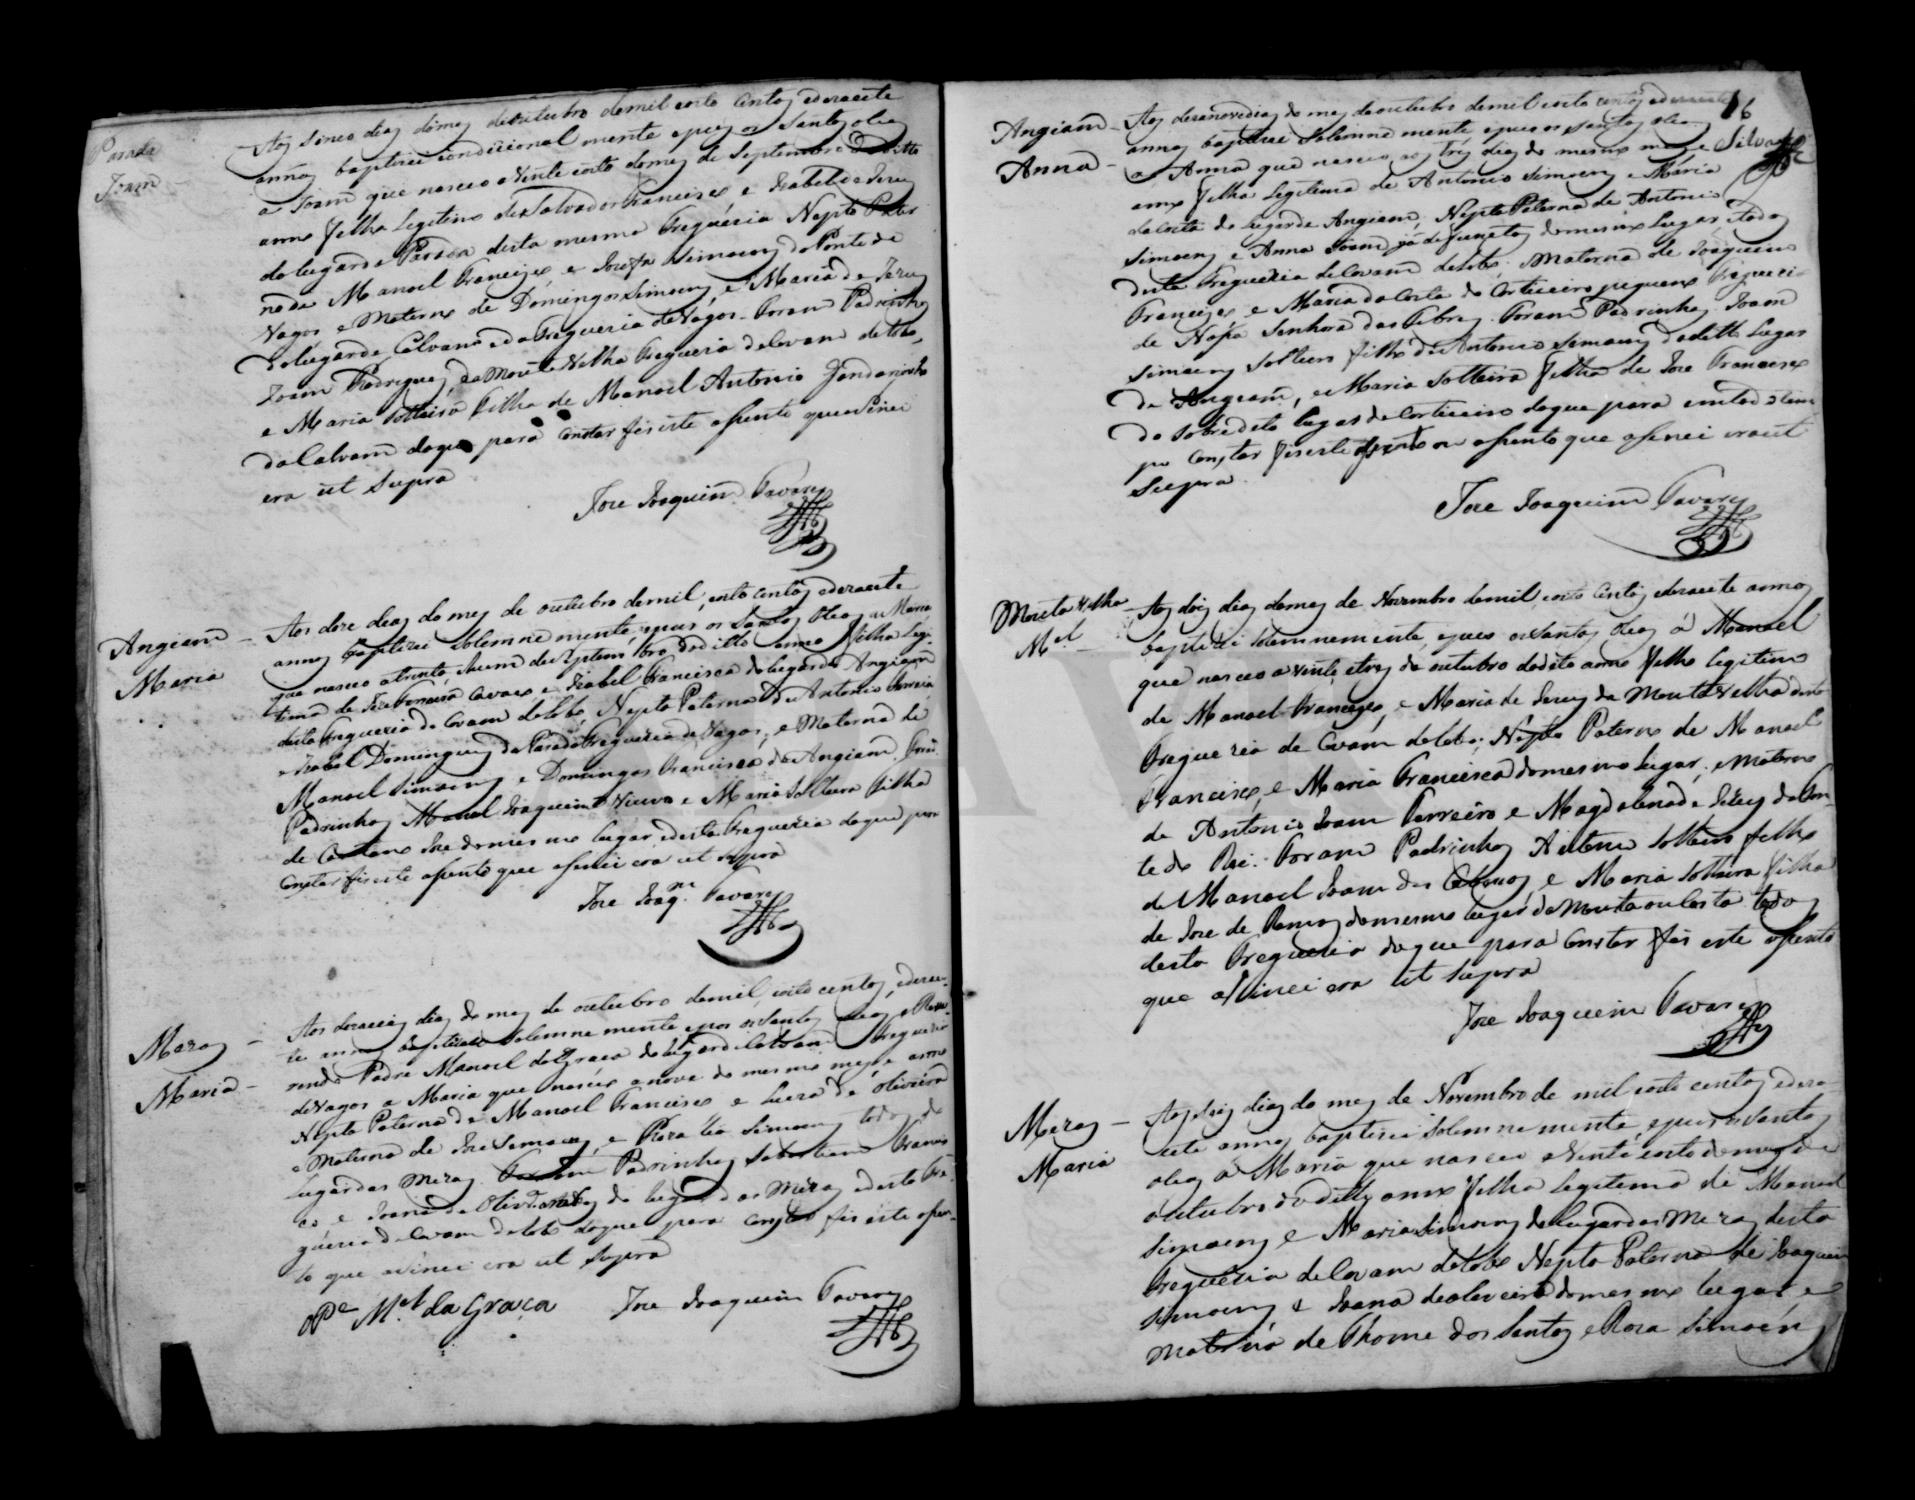 Parada
Joam
Aos sinco dias do mes de outubro de mil oito centos e dezacete
annos baptizei condicional mente e puz os Santos oleos
a Joam que nasceo a vinte oito do mes de Septembro do ditto
anno filho legitimo de Salvador Francisco e Izabel de Jezus
do lugar da Parada desta mesma Freguezia Nepto Pater
no de Manoel Francisco e Josefa Simoens da Ponte de
Vagos e Materno de Domingos Simoens, e Maria de Jezus
do lugar de Calvam e da Freguezia de Vagos. Foram Padrinhos
Joam Rodrigues da Mouta Velha Freguezia de Covam do lobo,
e Maria Solteira filha de Manoel Antonio Gandarinho
do Calvam doque para constar fis este asento que asinei
era ut supra
Joze Joaquim Tavares
Angiam
Maria
Aos doze dias do mes de outubro de mil, oito centos e dezacete
annos baptizei solemne mente, e puz os Santos oleos a Maria
que nasceo a trinta, hum de Septembro do ditto anno filha legi
tima de Joze Ferreira Cavaco e Izabel Francisca do lugar de Angiam
desta Freguezia de Covam do lobo, Nepta Paterna de Antonio Ferreira
e Izabel Domingues da Parada Freguezia de Vagos, e Materna de
Manoel Simoens e Domingas Francisca de Angiam. Foram
Padrinhos Manoel Joaquim Viuvo e Maria Solteira filha
de Caetano Joze do mes mo lugar, e desta Freguezia do que para
constar fis este asento que asinei era ut supra
Joze Joaqm. Tavares
Meza
Maria
Aos dezaceis dias do mes de outubro de mil, oito centos, e deza
te annos baptizou solemne mente e pos os Santos oleos o Reve
rendo Padre Manoel da Graça do lugar de Calvam Freguezia
de Vagos a Maria que nasceo a nove do mesmo mes e anno
Nepta Paterna de Manoel Francisco e Luzia de Oliveira
e Materna de Joze Simoens, e Roza Simoens todos do
lugar das Mezas. Foram Padrinhos Sebastiam Francis
co e Joana de Oliveira do lugar das Mezas e desta Fre
guezia de Covam do lobo doque para constar fis este asen
to que asinei era ut supra
O Pe. Mel. da Graça Joze Joaquim Tavares
16
Silva
Angiam
Anna
Aos dezanove dias do mes de outubro de mil oito centos e dezacete
annos baptizei solemne mente e puz os santos oleos
a Anna que nasceo aos tres dias do mesmo mes e
anno filha legitima de Antonio Simoens e Maria
da Costa do lugar de Angiam, Nepta Paterna de Antonio
Simoens e Anna Joam já defunctos do mesmo lugar e todos
desta Freguezia de Covam do lobo. Materna de Joaquim
Francisco e Maria da Costa do Corticeiro pequeno Freguezia
de Nossa Senhora das Febres. Foram Padrinhos Joam
Simoens Solteiro filho de Antonio Simoens do ditto lugar
de Angiam, e Maria Solteira filha de Joze Francisco
do sobredito lugar de Corticeiro doque para em todo o tem
po constar fis este asento que asinei era ut
supra.
Joze Joaquim Tavares
Mouta Velha
Mel.
Aos dois dias do mes de Novembro de mil, oito centos e dezacete annos
baptizei solemnemente, e puz os Santos oleos á Manoel
que nasceo a vinte e tres de outubro do dito anno filho legitimo
de Manoel Francisco, e Maria de Jezus da Mouta Velha desta
Freguezia de Covam do lobo; Nepto Paterno de Manoel
Francisco, e Maria Francisca do mesmo lugar, e Materno
de Antonio Joam Ferreiro e Magdalena de Jezus da Fon
te do Rei. Foram Padrinhos Antonio Solteiro filho
de Manoel Joam e Maria Solteira filha
de Joze de Ramos do mesmo lugar da Mouta todos
desta Freguezia doque para constar fis este asento
que asinei era ut supra
Joze Joaquim Tavares
Mezas
Maria
Aos seis dias do mes de Novembro de mil oito centos e deza
cete annos baptizei solemne mente, e puz os Santos
oleos a Maria que nasceo a vinte oito do mes de
outubro do ditto anno filha legitima de Manoel
Simoens e Maria Simoens do lugar das Mezas desta
Freguezia de Covam do lobo Nepta Paterna de Joaquim
Simoens e Joana de oliveira do mes mo lugar e
materna de Thome dos Santos e Roza Simoens